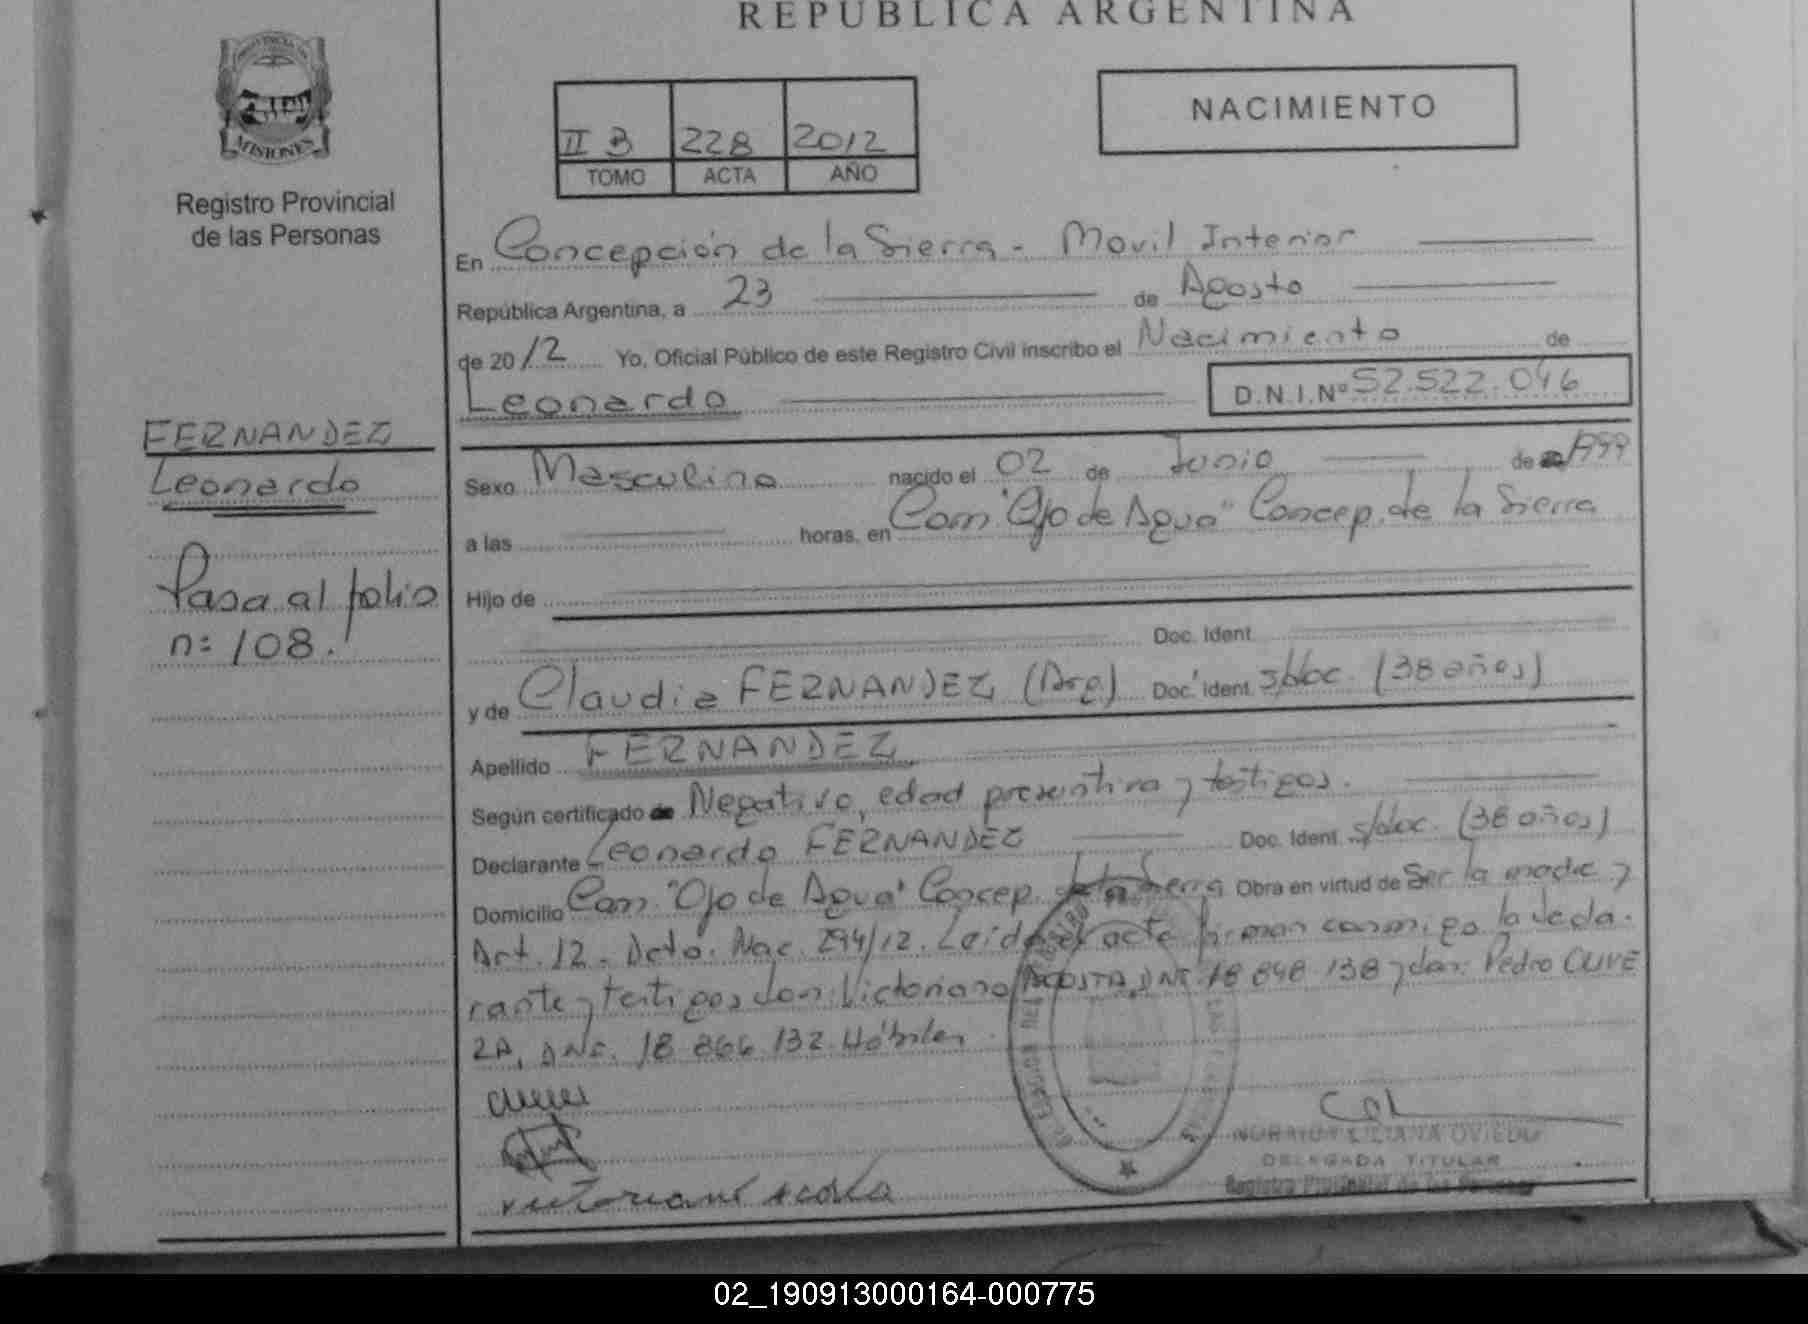 REPUBLICA ARGENTINA
PROVINCIA DE
MISIONES
Registro Provincial
de las Personas
II B 228 2012
TOMO ACTA AÑO
NACIMIENTO
En Concepción de la Sierra - Movil Interior
República Argentina, a 23 de Agosto
de 2012 Yo, Oficial Público de este Registro Civil inscribo el Nacimiento de
Leonardo D.N.I.Nº 52.522.046
FERNANDEZ
Leonardo
Pasa al folio
n: 108.
Sexo Masculino nacido el 02 de Junio de 1999
a las horas, en Com "Ojo de Agua" Concep. de la Sierra
Hijo de
Doc. Ident.
y de Claudia FERNANDEZ (Arg.) Doc. Ident. s/doc. (38 años)
Apellido FERNANDEZ
Según certificado de Negativo, edad presuntiva y testigos.
Declarante Leonardo FERNANDEZ Doc. Ident. s/doc. (38 años)
Domicilio Com. "Ojo de Agua" Concep. de la Sierra Obra en virtud de Ser la madre y
Art. 12. Dcto. Nac. 294/12. Leida el acta firman conmigo la decla-
rante y testigos don: Victoriano ACOSTA, DNI. 18 848 138 y don: Pedro OLIVE
RA, DNI. 18 866 132 Hábiles
NORA LILIANA OVIEDO
DELEGADA TITULAR
Registro Provincial de las Personas
02_190913000164-000775